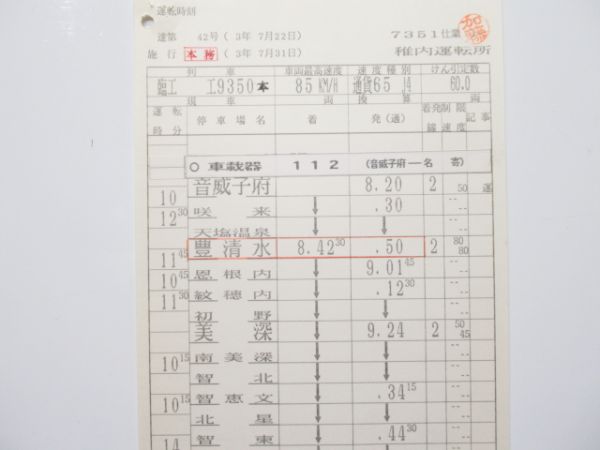 運転時刻
達第 42号 ( 3年 7月22日) 7351仕業
施行 本務 ( 3年 7月31日) 稚内運転所
加藤
列車 車両最高速度 速度種別 けん引定数
臨工 工9350本 85KM/H 通貨65 J4 60.0
現車 両 換算 両
運転時分 停車場名 着 発(通) 着発線 制限速度 記事
○ 車載器 112 (音威子府ー名寄)
音威子府 8.20 2 50 運
10
咲来 ↓ .30
12 30
天塩温泉 ↓ ↓
豊清水 8.42 30 .50 2 80 80
11 45
恩根内 ↓ 9.01 45
10 45
紋穂内 ↓ .12 30
11 30
初野 ↓ ↓
美深 ↓ 9.24 2 50 45
南美深 ↓ ↓
10 15
智北 ↓ ↓
智恵文 ↓ .34 15
10 15
北星 ↓ ↓
智東 ↓ .44 30
14